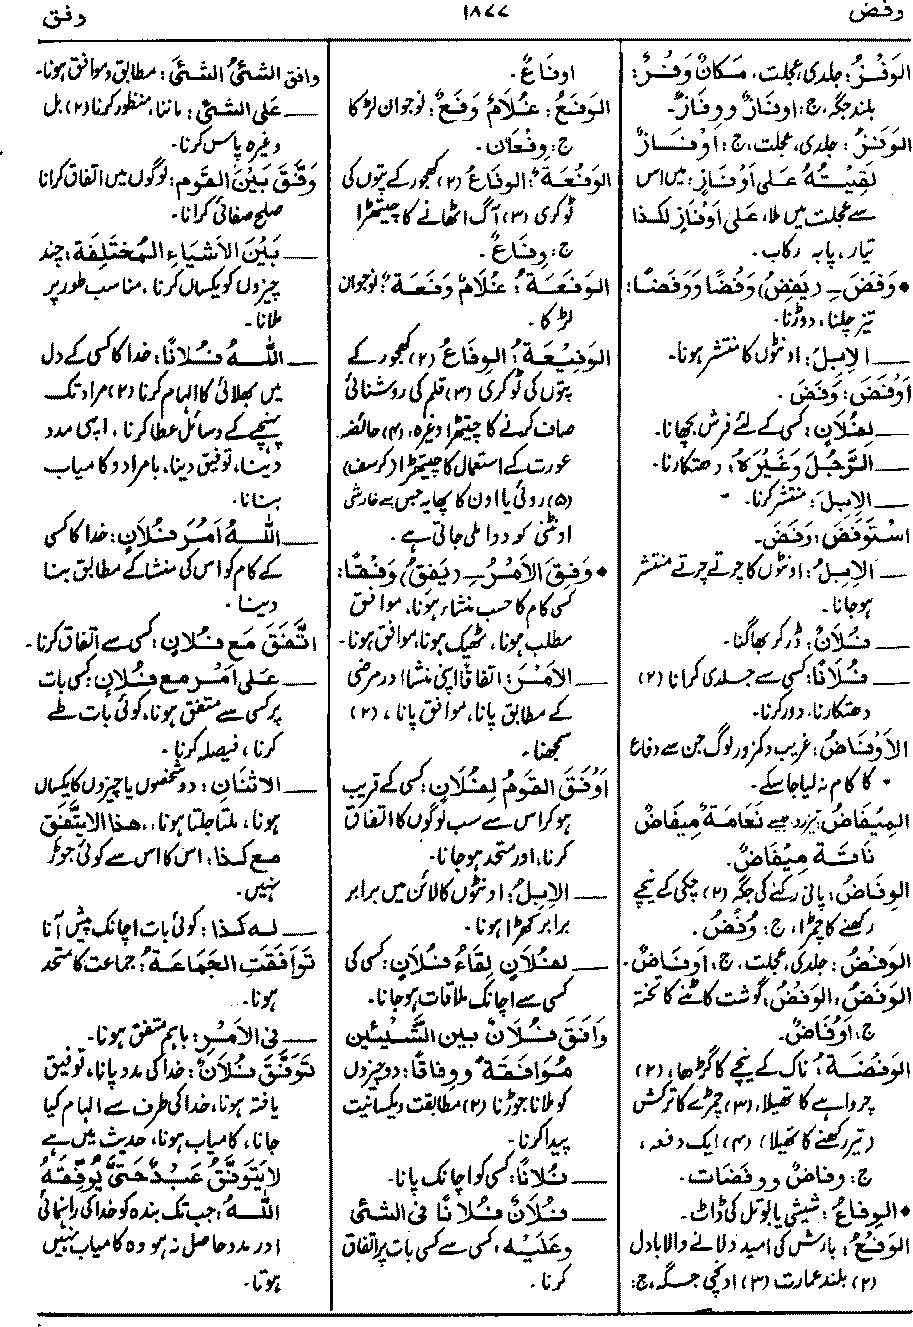 وفض
۱۸۷۷
وفق
الوَفْزُ: جلدی، عجلت، مَکَانٌ وَفْزٌ:
بلند جگہ، ج: اَوْفَازٌ ووِفَازٌ۔
الوَفَزُ: جلدی، عجلت، ج: اَوْفَازٌ
لَقِیْتُهُ عَلٰی اَوْفَازٍ: میں اس
سے عجلت میں ملا، عَلٰی اَوْفَازٍ لِکَذَا
تیار، پابہ رکاب۔
• وَفَضَ ـِ (یَفِضُ) وَفْضًا وَوَفَضًا:
تیز چلنا، دوڑنا۔
ـــ الاِبِلُ: اونٹوں کا منتشر ہونا۔
اَوْفَضَ: وَفَضَ۔
ـــ لِفُلَانٍ: کسی کے لئے فرش بچھانا۔
ـــ الرَّجُلَ وَغَیْرَهُ: دھتکارنا۔
ـــ الاِبِلَ: منتشر کرنا۔
اسْتَوفَضَ: وَفَضَ۔
ـــ الاِبِلُ: اونٹوں کا چرتے چرتے منتشر
ہو جانا۔
ـــ فُلَانٌ: ڈر کر بھاگنا۔
ـــ فُلَانًا: کسی سے جلدی کرانا (۲)
دھتکارنا، دور کرنا۔
الاَوْفَاضُ: غریب و کمزور لوگ جن سے دفاع
کا کام نہ لیا جا سکے۔
المِیْفَاضُ: تیز رو جیسے نَعَامَةٌ مِیْفَاضٌ
نَاقَةٌ مِیْفَاضٌ۔
الوِفَاضُ: پانی رکنے کی جگہ (۲) چکی کے نیچے
رکھنے کا چمڑا، ج: وُفُضٌ۔
الوَفْضُ: جلدی، عجلت، ج، اَوفَاضٌ۔
الوَفَضُ، الوَفْضُ: گوشت کاٹنے کا تختہ
ج: اَوْفَاضٌ۔
الوَفْضَةُ: ناک کے نیچے کا گڑھا، (۲)
چرواہے کا تھیلا، (۳) چمڑے کا ترکش
(تیر رکھنے کا تھیلا) (۴) ایک دفعہ،
ج: وِفَاضٌ ووَفَضَات۔
• الوِفَاعُ: شیشی یا بوتل کی ڈاٹ۔
الوَفْعُ: بارش کی امید دلانے والا بادل
(۲) بلند عمارت (۳) اونچی جگہ، ج:
اوفَاعٌ۔
الوَفَعُ: غُلَامٌ وَفَعٌ: نوجوان لڑکا
ج: وِفْعَان۔
الوَفْعَةُ: الوِفَاعُ (۲) کھجور کے پتوں کی
ٹوکری (۳) آگ اٹھانے کا چیتھڑا
ج: وِفَاعٌ۔
الوَفَعَةُ: غُلَامٌ وَفَعَةٌ: نوجوان
لڑکا۔
الوَفِیْعَةُ: الوِفَاعُ (۲) کھجور کے
پتوں کی ٹوکری (۳) قلم کی روشنائی
صاف کرنے کا چیتھڑا وغیرہ، (۴) حائضہ
عورت کے استعمال کا چیتھڑا (کرسف)
(۵) روئی یا اون کا پھایہ جس سے خارشی
اونٹنی کو دوا ملی جاتی ہے۔
• وَفِقَ الاَمْرُ ـِ (یَفِقُ) وَفْقًا:
کسی کام کا حسب منشاء ہونا، موافق
مطلب ہونا، ٹھیک ہونا، موافق ہونا۔
ـــ الاَمْرَ: اتفاقاً اپنی منشا اور مرضی
کے مطابق پانا، موافق پانا، (۲)
سمجھنا۔
اَوْفَقَ القَوْمُ لِفُلَانٍ: کسی کے قریب
ہو کر اس سے سب لوگوں کا اتفاق
کرنا، اور متحد ہو جانا۔
ـــ الاِبِلُ: اونٹوں کا لائن میں برابر
برابر کھڑا ہونا۔
ـــ لِفُلَانٍ لِقَاءُ فُلَانٍ: کسی کی
کسی سے اچانک ملاقات ہو جانا۔
وَافَقَ فُلَانٌ بَین الشَّیْئَیْنِ
مُوَافَقَةً ووِفَاقًا: دو چیزوں
کو ملانا جوڑنا (۲) مطابقت و یکسانیت
پیدا کرنا۔
ـــ فُلَانًا: کسی کو اچانک پانا۔
ـــ فُلَانٌ فُلَانًا فی الشَّیْ
وعَلَیْه: کسی سے کسی بات پر اتفاق
کرنا۔
وافق الشَّیُٔ الشَّیَٔ: مطابق و موافق ہونا۔
ـــ عَلَی الشَّیِٔ: ماننا، منظور کرنا (۲) بل
وغیرہ پاس کرنا۔
وَفَّقَ بَیْنَ القَوْمِ: لوگوں میں اتفاق کرانا
صلح صفائی کرانا۔
ـــ بَیْنَ الاَشْیَاءِ المُخْتَلِفَةِ: چند
چیزوں کو یکساں کرنا، مناسب طور پر
ملانا۔
ـــ اللّٰهُ فُلَانًا: خدا کا کسی کے دل
میں بھلائی کا الہام کرنا (۲) مراد تک
پہنچنے کے وسائل عطا کرنا، اپنی مدد
دینا، توفیق دینا، بامراد و کامیاب
بنانا۔
ـــ اللّٰهُ اَمْرَ فُلَانٍ: خدا کا کسی
کے کام کو اس کی منشا کے مطابق بنا
دینا۔
اتَّفَقَ مَعَ فُلَانٍ: کسی سے اتفاق کرنا۔
ـــ عَلٰی اَمْرٍ مع فُلَانٍ: کسی بات
پر کسی سے متفق ہونا، کوئی بات طے
کرنا، فیصلہ کرنا۔
ـــ الاثْنَانِ: دو شخصوں یا چیزوں کا یکساں
ہونا، ملتا جلتا ہونا، هذا لایَتَّفِقُ
مع کذا: اس کا اس سے کوئی جوڑ
نہیں۔
ـــ له کذا: کوئی بات اچانک پیش آنا
تَوَافَقَتِ الجَمَاعَةُ: جماعت کا متحد
ہونا۔
ـــ فی الاَمْرِ: باہم متفق ہونا۔
تَوَفَّقَ فُلَانٌ: خدا کی مدد پانا، توفیق
یافتہ ہونا، خدا کی طرف سے الہام کیا
جانا، کامیاب ہونا، حدیث میں ہے
لَا یَتَوَفَّقُ عَبْدٌ حَتّٰی یُوَفِّقَهُ
اللّٰهُ: جب تک بندہ کو خدا کی راہنمائی
اور مدد حاصل نہ ہو وہ کامیاب نہیں
ہوتا۔